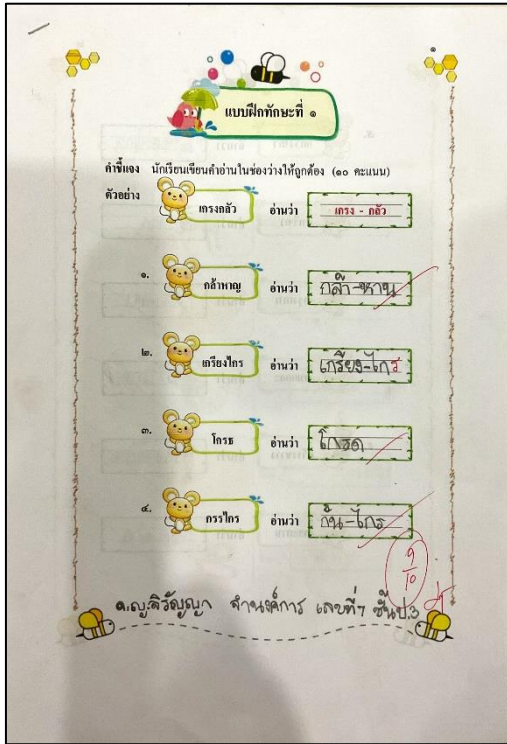 ๑
แบบฝึกทักษะที่ ๑
คำชี้แจง นักเรียนเขียนคำอ่านในช่องว่างให้ถูกต้อง (๑๐ คะแนน)
ตัวอย่าง เกรงกลัว อ่านว่า เกรง - กลัว
๑. กล้าหาญ อ่านว่า กล้า-หาน
๒. เกรียงไกร อ่านว่า เกรียง-ไกร
๓. โกรธ อ่านว่า โกรด
๔. กรรไกร อ่านว่า กัน-ไกร
9
10
ด.ญ. เลขที่7 ชั้นป.3